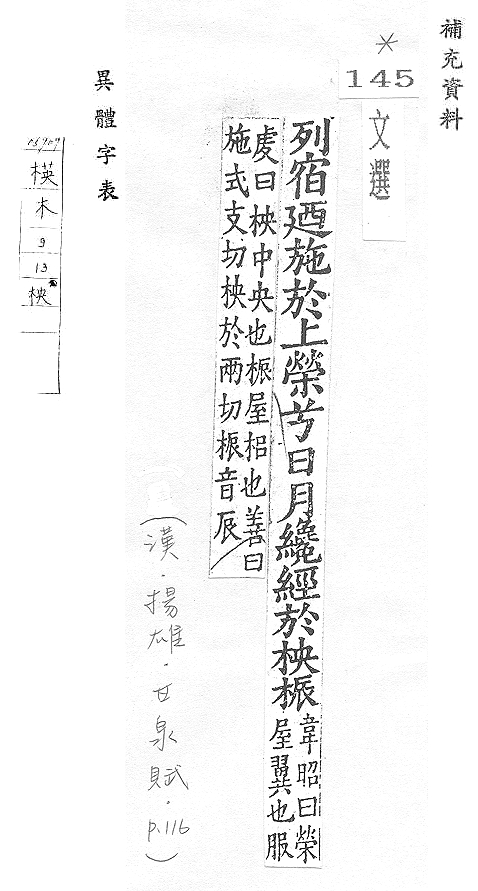 補充資料
*
145
文選
列宿廼施於上榮兮日月纔經於柍桭
韋昭曰榮
屋翼也服
虔曰柍中央也桭屋梠也善曰
施式支切柍於兩切桭音辰
(漢.揚雄.甘泉賦.p.116)
異體字表
楧
木
9
13
柍